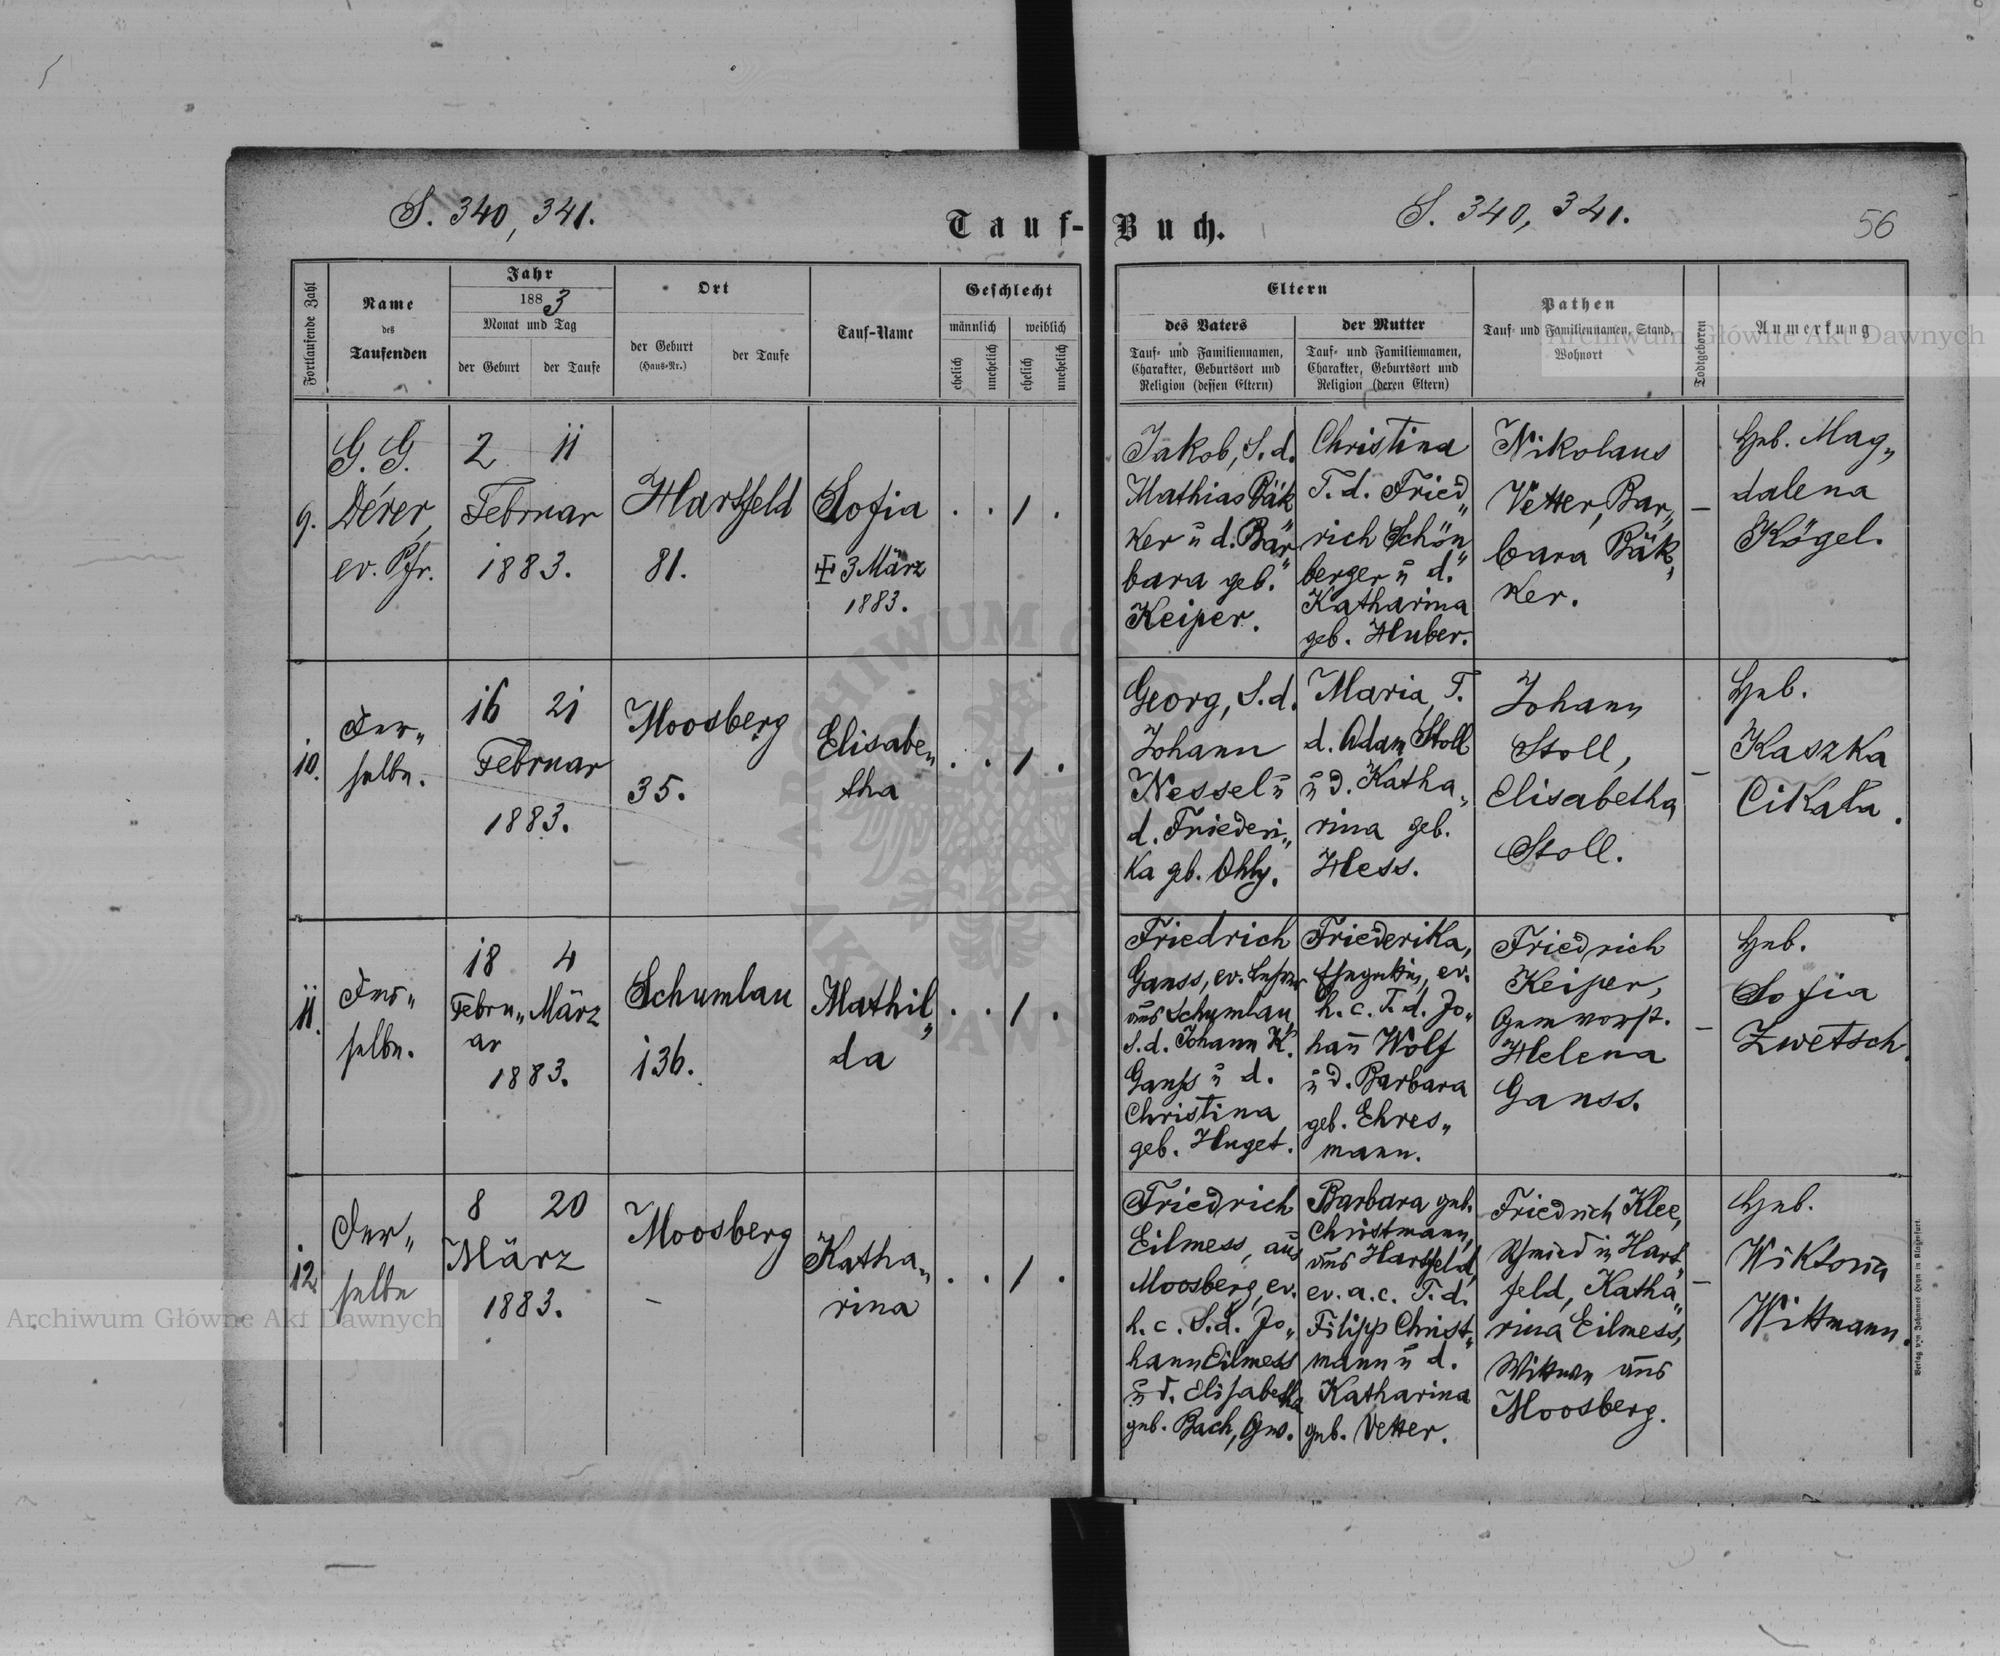 S. 340, 341.
Tauf-Buch.
S. 340, 341.
56
Fortlaufende Zahl
Name
des
Taufenden
Jahr
1883
Monat und Tag
der Geburt
der Taufe
Ort
der Geburt
(Haus-Nr.)
der Taufe
Tauf-Name
Geschlecht
männlich
weiblich
ehelich
unehelich
ehelich
unehelich
Eltern
des Vaters
Tauf- und Familiennamen,
Charakter, Geburtsort und
Religion (dessen Eltern)
der Mutter
Tauf- und Familiennamen,
Charakter, Geburtsort und
Religion (deren Eltern)
Pathen
Tauf- und Familiennamen, Stand,
Wohnort
Todtgeboren
Anmerkung
9.
G. G.
Dérer,
ev. Pfr.
2 11
Februar
1883.
Hartfeld
81.
Sofia
3 März
1883.
. . 1 .
Jakob, S. d.
Mathias Bäk„
ker u d. Bar„
bara geb.
Keiper.
Christina
T. d. Fried„
rich Schön„
berger u d.
Katharina
geb. Huber.
Nikolaus
Vetter, Bar„
bara Bäk„
ker.
–
Heb. Mag„
dalena
Kögel.
10.
Der„
selbe.
16 21
Februar
1883.
Moosberg
35.
Elisabe„
tha
. . 1 .
Georg, S. d.
Johann
Nessel u
d. Friederi„
ka gb. Ohly.
Maria, T.
d. Adam Stoll
u d. Katha„
rina geb.
Hess.
Johann
Stoll,
Elisabetha
Stoll.
–
Heb.
Kaszka
Cikała.
11.
Der„
selbe.
18 4
Febru„ März
ar
1883.
Schumlau
136.
Mathil„
da
. . 1 .
Friedrich
Ganss, ev. Lehrer
aus Schumlau,
S. d. Johann K.
Ganss u d.
Christina
geb. Huget.
Friederika,
Ehegattin, ev.
h. c. T. d. Jo„
hann Wolf
u d. Barbara
geb. Ehres„
mann.
Friedrich
Keiper,
Gemvorst.
Helena
Ganss.
–
Heb.
Sofia
Zwetsch.
12
Der„
selbe
8 20
März
1883.
Moosberg
–
Katha„
rina
. . 1 .
Friedrich
Eilmess, aus
Moosberg, ev.
h. c. S. d. Jo„
hann Eilmess
u d. Elisabetha
geb. Bach, Gw.
Barbara geb.
Christmann,
aus Hartfeld,
ev. a. c. T. d.
Filipp Christ„
mann u d.
Katharina
geb. Vetter.
Friedrich Klee,
Schmied in Hart„
feld, Katha„
rina Eilmess,
Witwe aus
Moosberg.
–
Heb.
Wiktoria
Wittmann.
Verlag von Johannes Heyn in Klagenfurt.
Archiwum Główne Akt Dawnych
Archiwum Główne Akt Dawnych